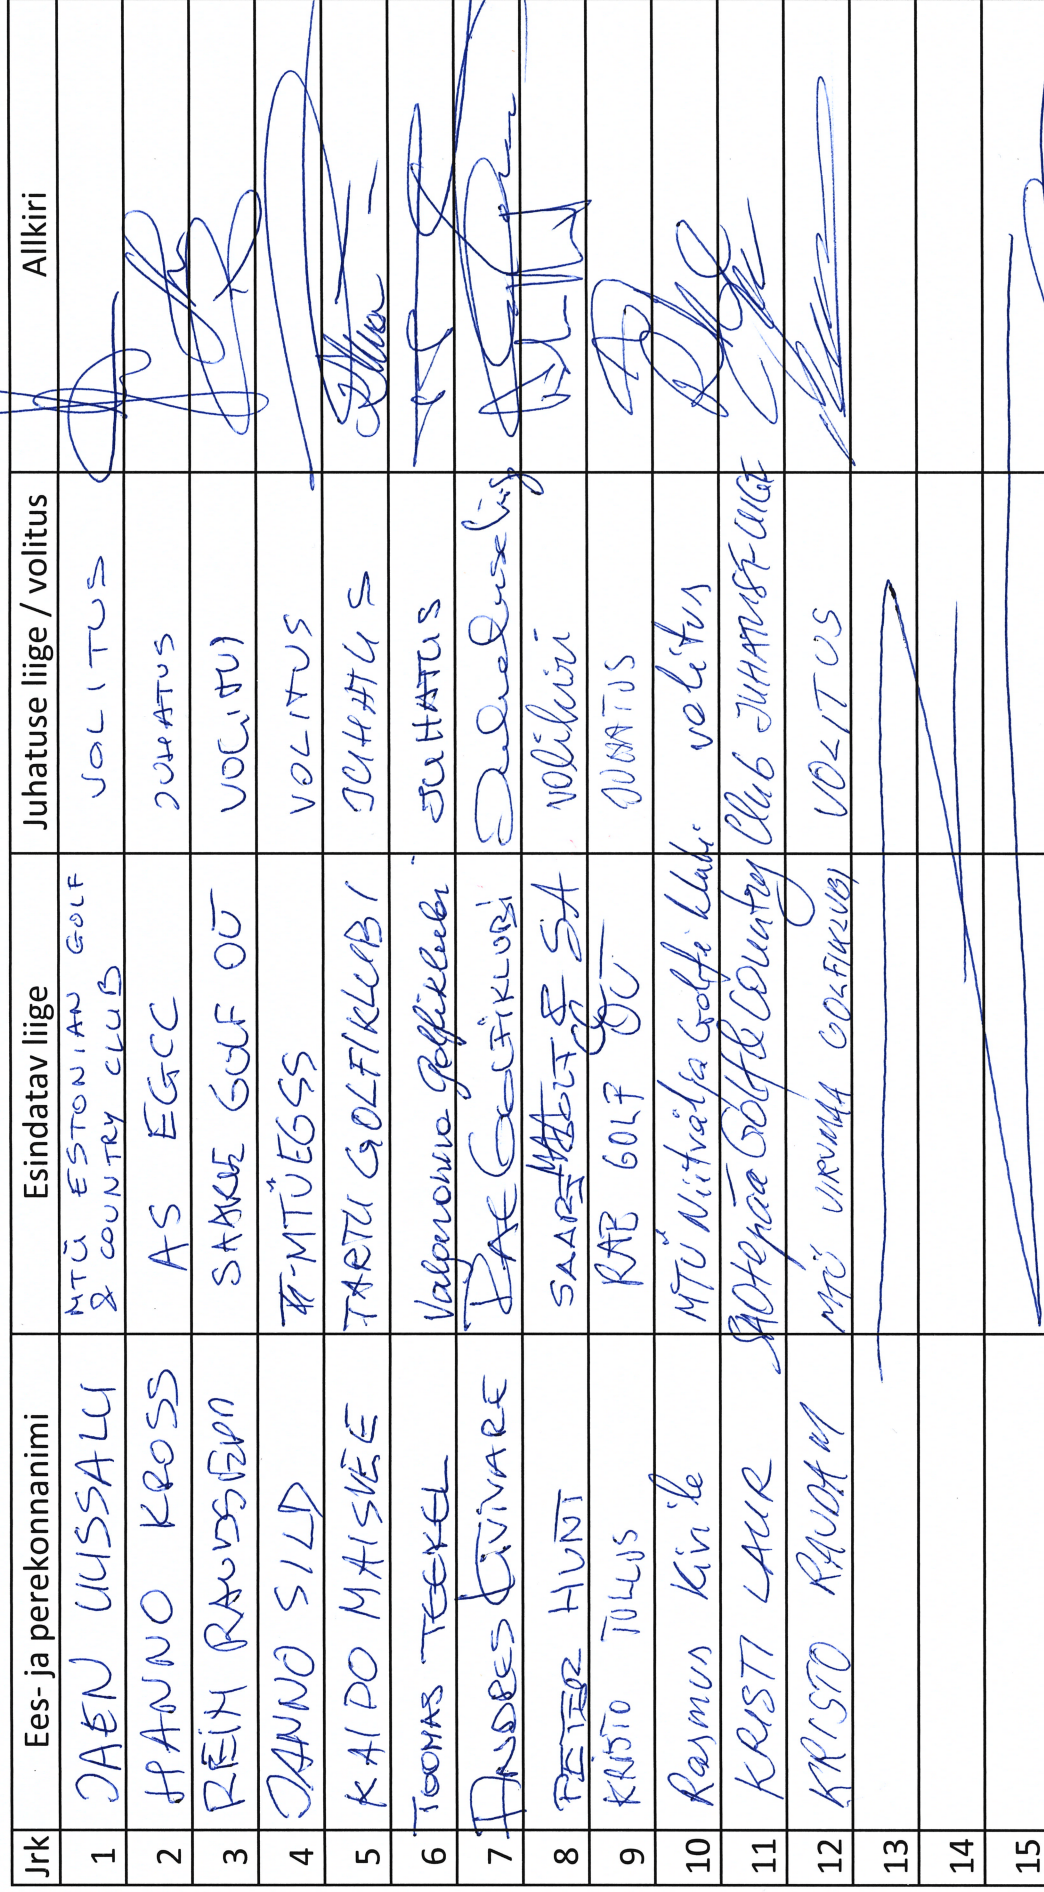 Jrk Ees- ja perekonnanimi Esindatav liige Juhatuse liige / volitus Allkiri
1 JAEN UUSSALU MTÜ ESTONIAN GOLF & COUNTRY CLUB VOLITUS
2 HANNO KROSS AS EGCC JUHATUS
3 REIM RAUDSEPP SAARE GOLF OÜ VOLITUS
4 JANNO SILD MTÜ EGSS VOLITUS
5 KAIDO MAISVEE TARTU GOLFIKLUBI JUHATUS
6 TOOMAS TEEKEL Valgeranna Golfiklubi JUHATUS
7 ANDRES LIIVVARE RAE GOLFIKLUBI
8 PEETER HUNT SAAREMAA GOLF & SA volikiri
9 KRISTO TULLUS RAE GOLF OÜ JUHATUS
10 Rasmus Kivile MTÜ Niitvälja Golfi klubi volitus
11 KRISTI LAUR Otepää Golf & Country Club JUHATUSE LIIGE
12 KRISTO RAUDAM MTÜ VIRUMAA GOLFIKLUBI VOLITUS
13
14
15